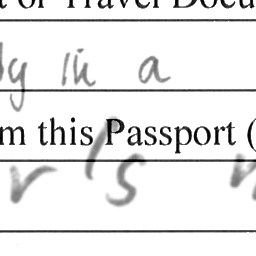 t or Travel Docu
in a
m this Passport (
r's